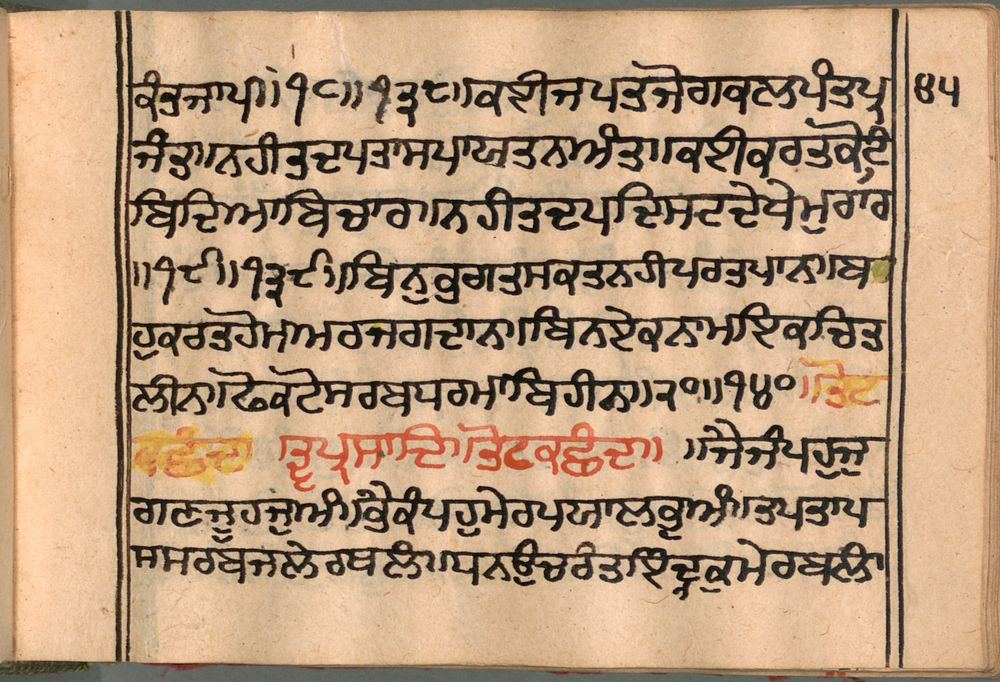 ਕੰਤਜਾਪ॥੧੮॥੧੩੮॥ਕਈਜਪਤਜੋਗਕਲਪੰਤਪ੍ਰ ੪੫
ਜੰਤੁ॥ਨਹੀਤਦਪਤਾਸਪਾਯਤਨਾਅੰਤ॥ਕਈਕਰਤਕੋਟਿ
ਬਿਦਿਆਬਿਚਾਰ॥ਨਹੀਤਦਪਦਿਸਟਦੇਖੇਮੁਰਾਰ
॥੧੯॥੧੩੯॥ਬਿਨੁਭਗਤਸਕਤਨਹੀਪਰਤਪਾਨ॥ਬ
ਹੁਕਰਤਹੋਮਅਰਜਗਦਾਨ॥ਬਿਨਏਕਨਾਮਇਕਚਿਤ
ਲੀਨ॥ਫੋਕਟੋਸਰਬਧਰਮਾਬਿਹੀਨ॥੨੦॥੧੪੦॥ਤੋਟ
ਕਛੰਦ ਤ੍ਵਪ੍ਰਸਾਦਿ॥ਤੋਟਕਛੰਦ॥ ॥ਜੈਜੰਪਹੁਜੁ
ਗਣਜੂਹਜੁਅੰ॥ਭੈਕੰਪਹੁਮੇਰਪਯਾਲਭੁਅੰ॥ਤਪਤਾਪ
ਸਸਰਬਜਲੇਰਥਲੰ॥ਧਨਉਚਰੰਤਇੰਦ੍ਰਕੁਮੇਰਬਲੰ